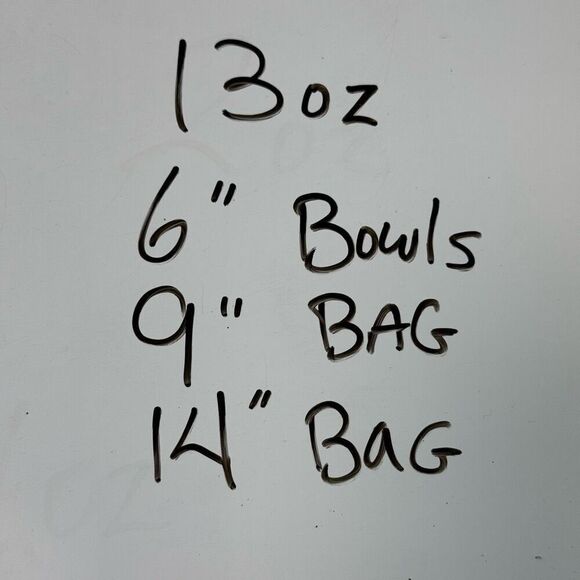 13oz
6" Bowls
9" BAG
14" BaG